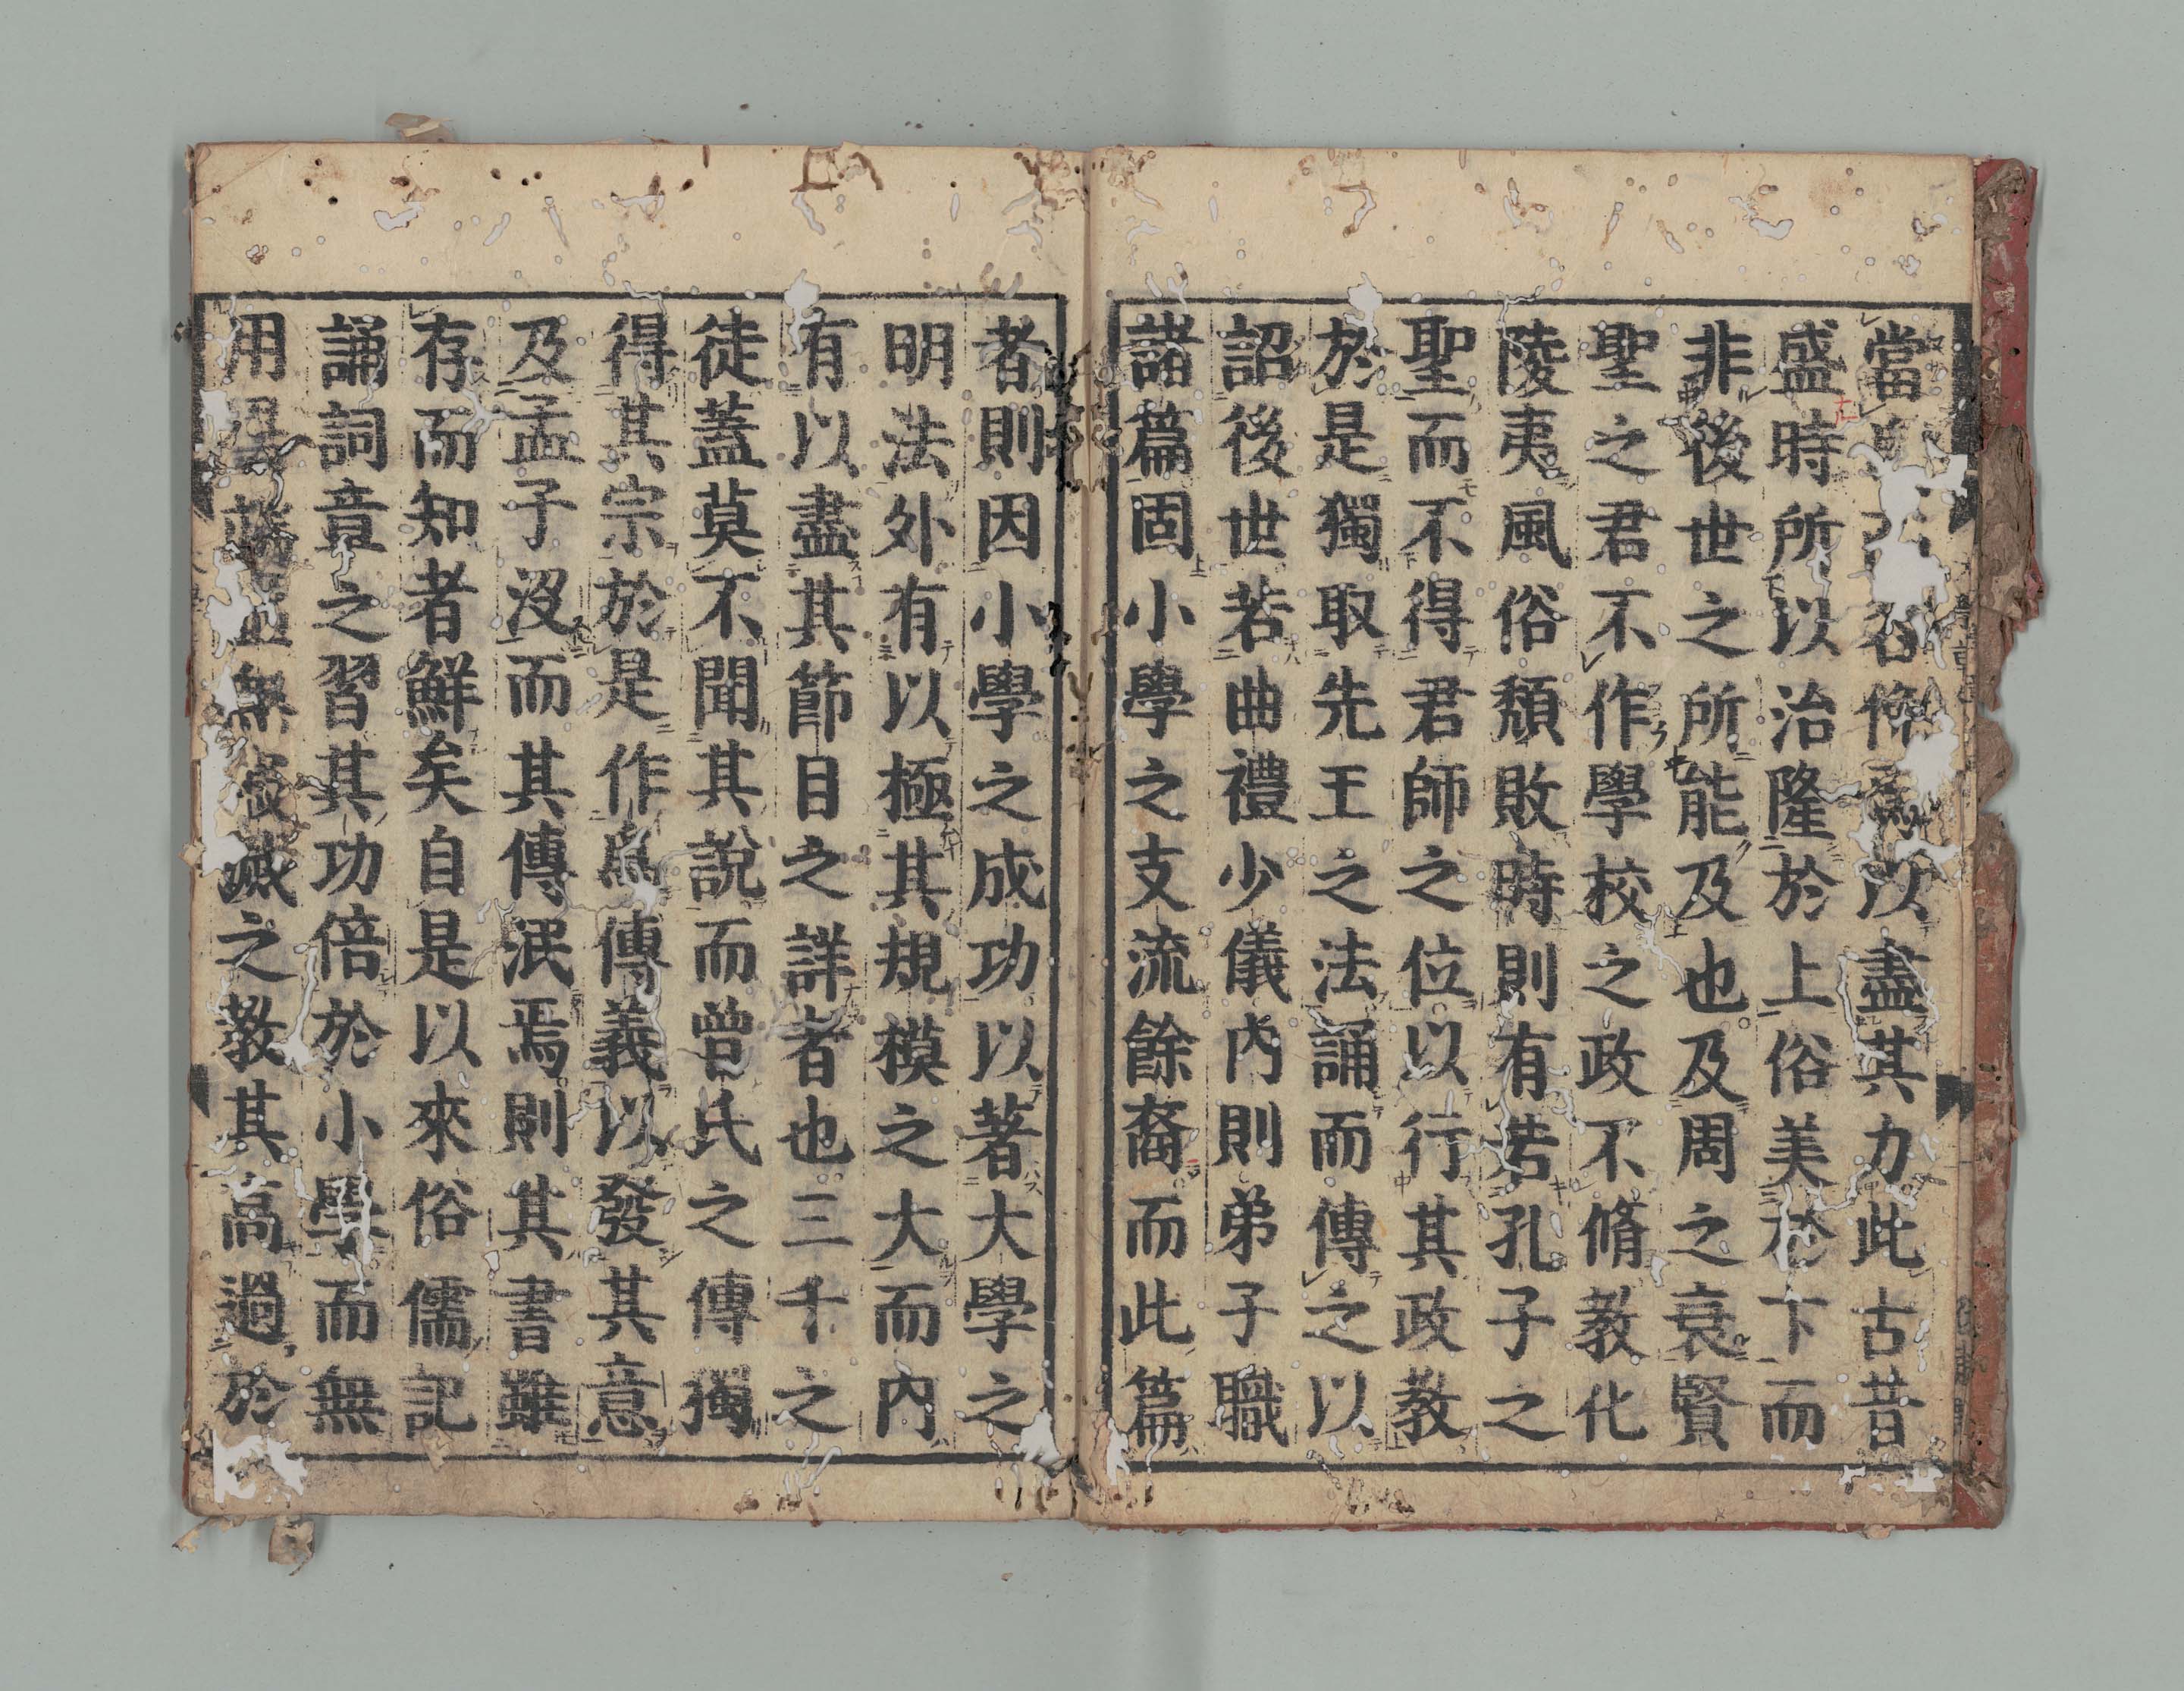 當爲而各俛焉以盡其力此古昔
盛時所以治隆於上俗美於下而
非後世之所能及也及周之衰賢
聖之君不作學校之政不脩教化
陵夷風俗頹敗時則有若孔子之
聖而不得君師之位以行其政教
於是獨取先王之法誦而傳之以
詔後世若曲禮少儀內則弟子職
諸篇固小學之支流餘裔而此篇
者則因小學之成功以著大學之
明法外有以極其規模之大而內
有以盡其節目之詳者也三千之
徒蓋莫不聞其說而曾氏之傳獨
得其宗於是作爲傳義以發其意
及孟子沒而其傳泯焉則其書雖
存而知者鮮矣自是以來俗儒記
誦詞章之習其功倍於小學而無
用異端虛無寂滅之教其高過於